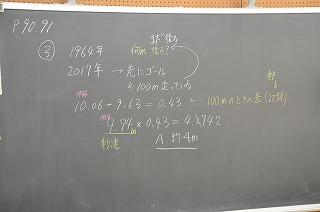 P 90.91
③ 1964年 何m後ろ?
まだ後ろ
2017年 → 先にゴール
※100m走っている
秒
1964
10.06 - 9.63 = 0.43 ← 100mのときの差(記録)
1964
9.94 × 0.43 = 4.2742
秒速 m
A. 約4m